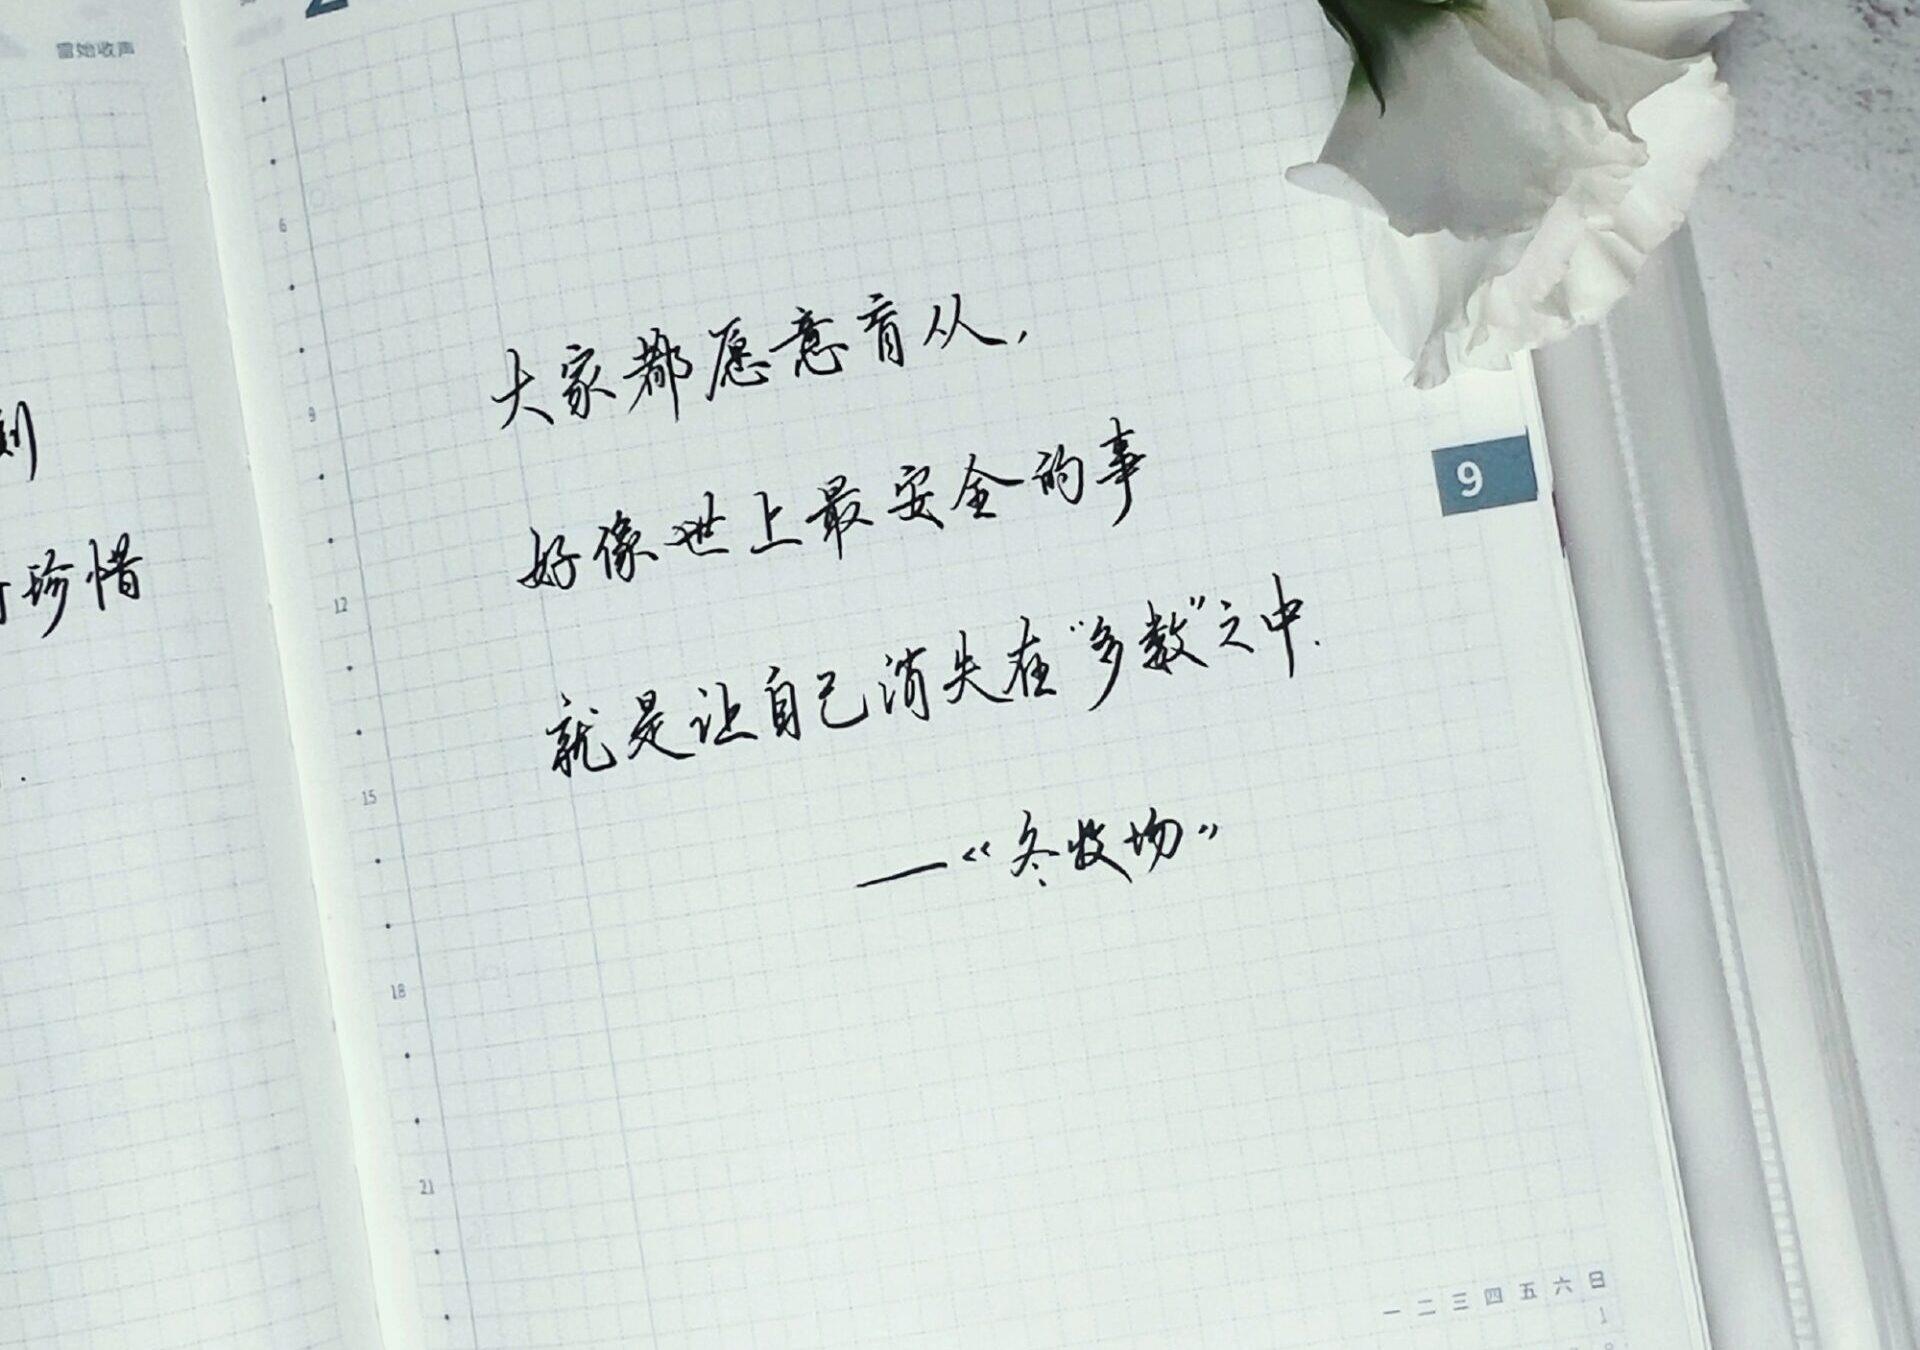 雷始收声
刻
珍惜
6
9
12
15
18
21
大家都愿意盲从,
好像世上最安全的事
就是让自己消失在“多数”之中.
—《冬牧场》
9
一 二 三 四 五 六 日
1